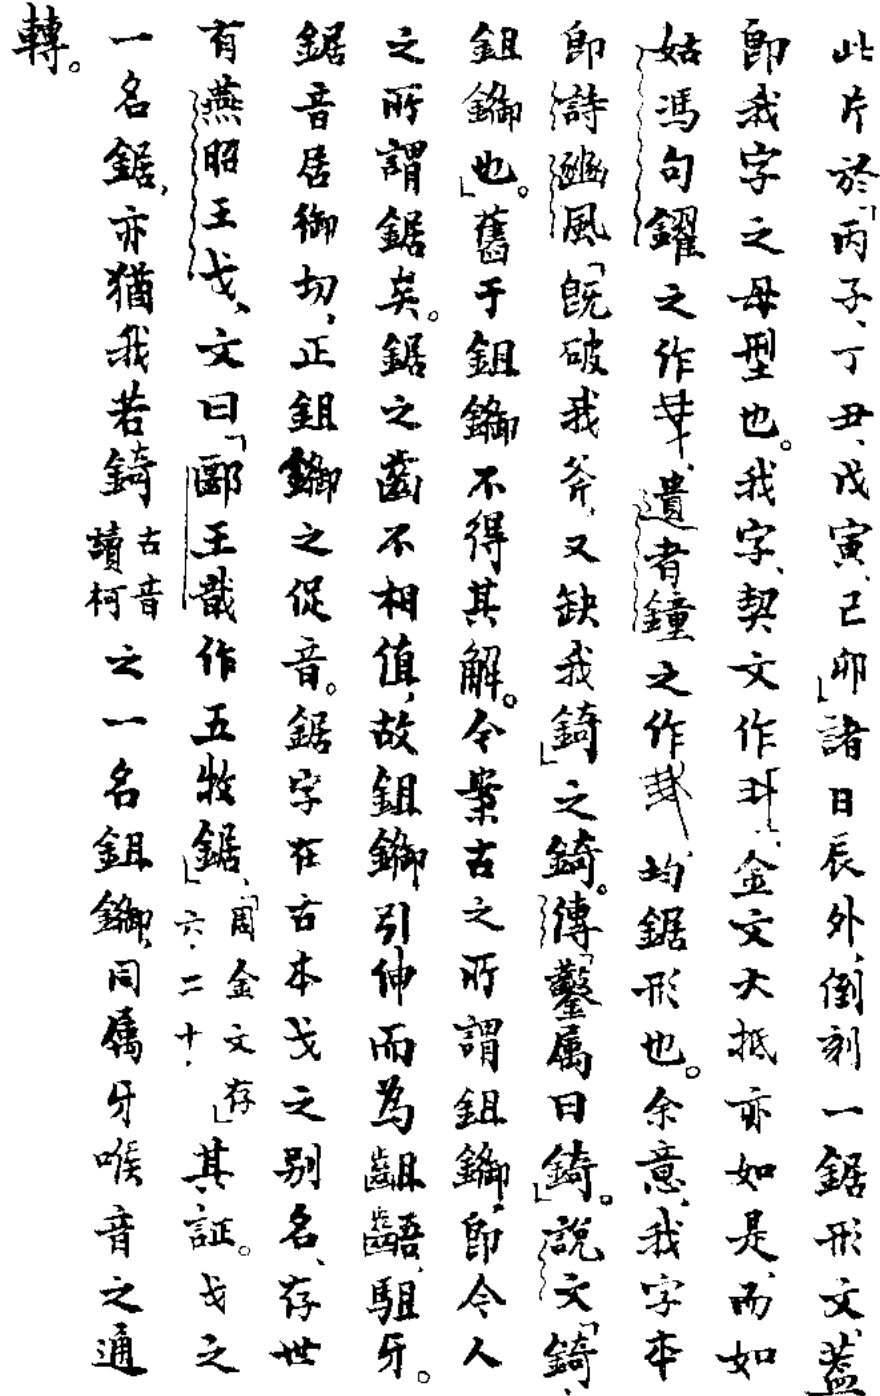 此片於「丙子、丁丑、戊寅、己卯」諸日辰外，倒刻一鋸形文，蓋
即我字之母型也。我字，契文作，金文大抵亦如是，而如
姑馮句鑃之作、遺者鐘之作，均鋸形也。余意，我字本
即詩豳風「旣破我斧，又缺我錡」之錡。傳「鑿属曰錡」。說文「錡，
鉏鋤也」。舊于鉏鋤不得其解。今案古之所謂鉏鋤，即今人
之所謂鋸矣。鋸之齒不相值，故鉏鋤引伸而為齟齬，駔牙。
鋸音居御切，正鉏鋤之促音。鋸字在古本戈之别名，存世
有燕昭王戈，文曰「郾王戠作五牧鋸」，「周金文存」六．二十．其証。戈之
一名鋸，亦猶我若錡古音讀柯之一名鉏鋤，同属牙喉音之通
轉。